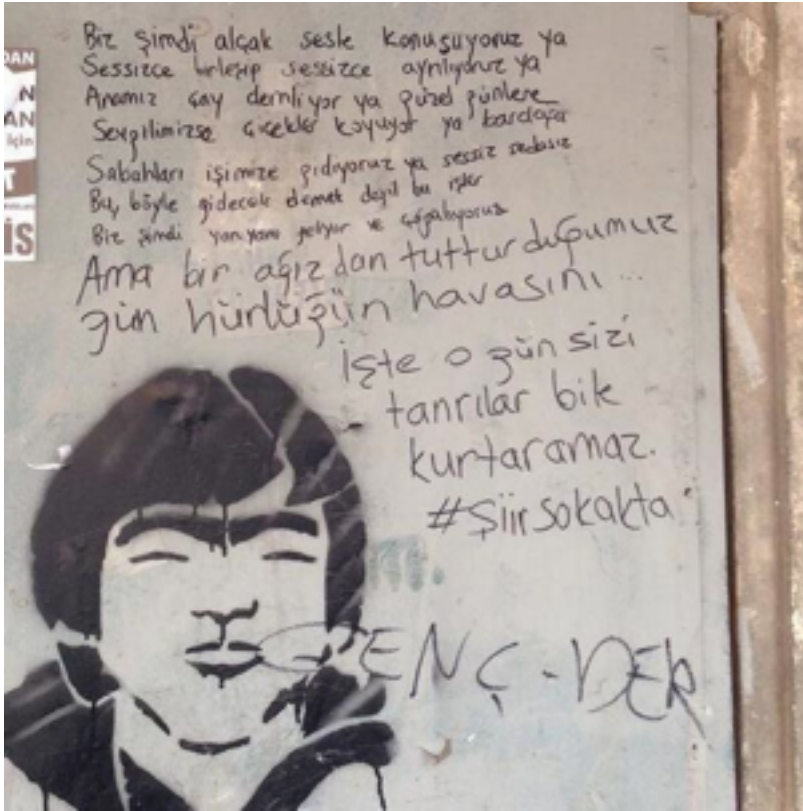 DAN
N
AN
için
T
İS
Biz şimdi alçak sesle konuşuyoruz ya
Sessizce birleşip sessizce ayrılıyoruz ya
Anamız çay demliyor ya güzel günlere
Sevgilimizse çiçekler koyuyor ya bardağa
Sabahları işimize gidiyoruz ya sessiz sedasız
Bu, böyle gidecek demek değil bu işler
Biz şimdi yan yana geliyor ve çoğalıyoruz
Ama bir ağızdan tutturduğumuz
gün hürlüğün havasını...
İşte o gün sizi
tanrılar bik
kurtaramaz.
#Şiirsokakta
GENÇ-DER